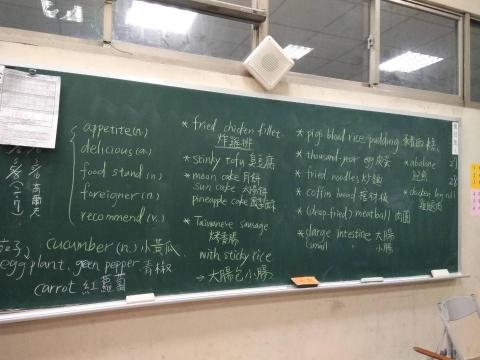 appetite (n.)
delicious (a.)
food stand (n.)
foreigner (n.)
recommend (v.)
cucumber (n.) 小黃瓜
egg plant, green pepper 青椒
carrot 紅蘿蔔
* fried chicken fillet
炸雞排
* stinky tofu 臭豆腐
* moon cake 月餅
sun cake 太陽餅
pineapple cake 鳳梨酥
* Taiwanese sausage
烤香腸
with sticky rice
→ 大腸包小腸
* pig's blood rice pudding 豬血糕
* thousand-year egg 皮蛋
* fried noodles 炒麵
* coffin bread 棺材板
* (deep-fried) meatball 肉圓
* large intestine 大腸
small 小腸
* abalone
鮑魚
* chicken leg roll
雞腿捲